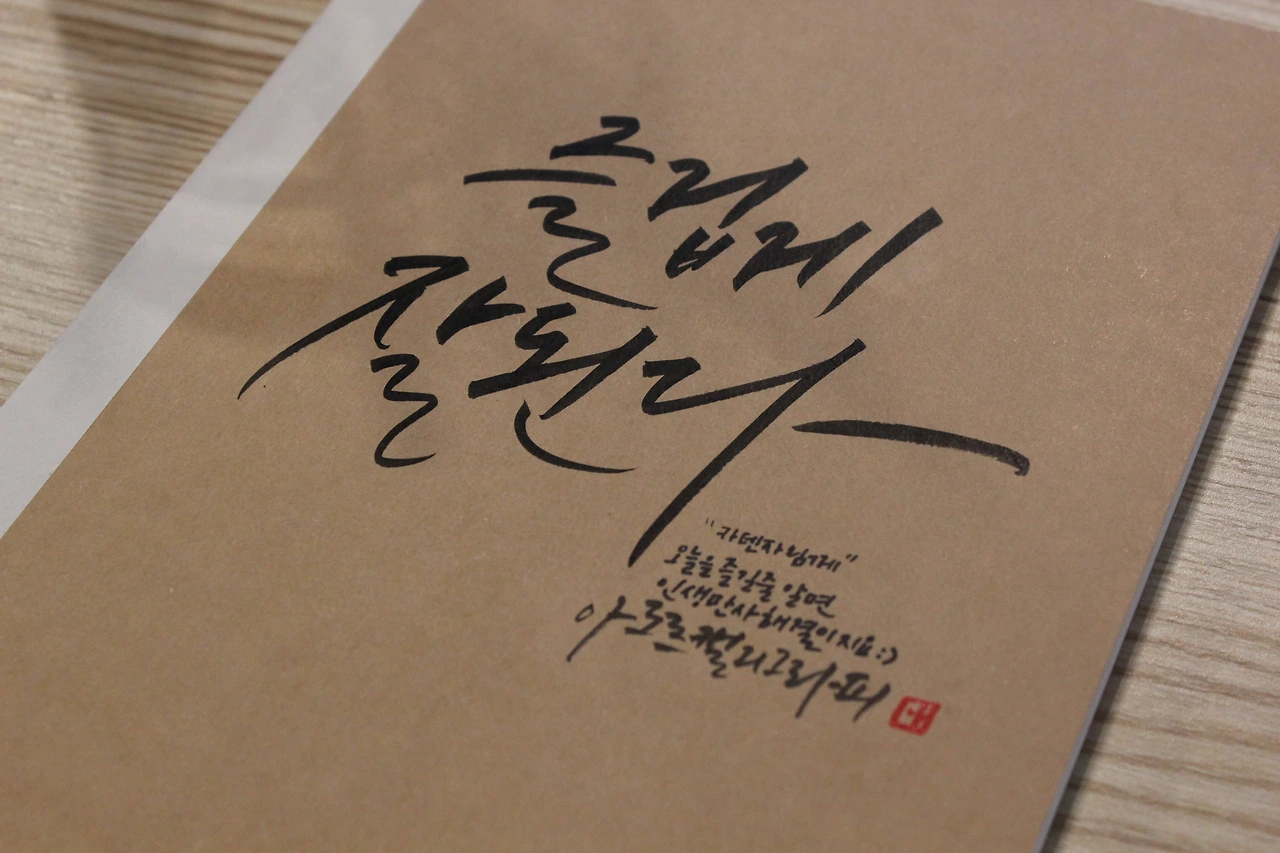 즐겁게
잘된다
"카덴자님께"
오늘을 즐길줄 알면
인생만사해결이지요:)
아모르캘리그라피